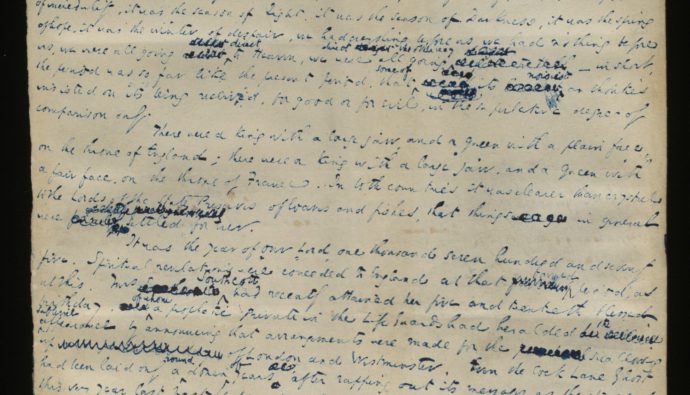 of incredulity, it was the season of Light, it was the season of Darkness, it was the spring
of hope, it was the winter of despair, we had everything before us, we had nothing before
us, we were all going direct to Heaven, we were all going direct the other way — in short,
the period was so far like the present period, that some of its noisiest authorities
insisted on its being received, for good or for evil, in the superlative degree of
comparison only.
There were a king with a large jaw, and a queen with a plain face,
on the throne of England; there were a king with a large jaw, and a queen with
a fair face, on the throne of France. In both countries it was clearer than crystal
to the Lords of the State Preserves of loaves and fishes, that things in general
were settled for ever.
It was the year of our Lord, one thousand seven hundred and seventy
five. Spiritual revelations were conceded to England at that period, as
at this. Mrs Southcott had recently attained her five and twentieth blessed
birthday of whom a prophetic private in the Life Guards had heralded the sublime
appearance by announcing that arrangements were made for the swallowing
up of London and Westminster. Even the Cock Lane Ghost
had been laid only a round dozen of years, after rapping out its messages, as the spirits of
this very year last past